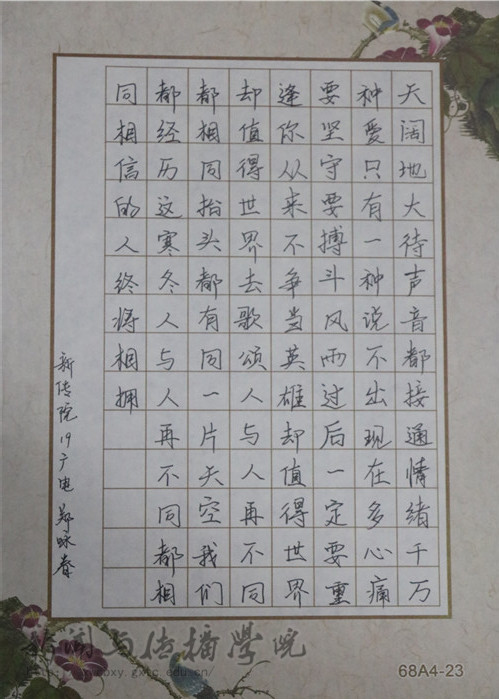 天阔地大待声音都接通情绪千万
种爱只有一种说不出现在多心痛
要坚守要搏斗风雨过后一定要重
逢你从来不争当英雄却值得世界
却值得世界去歌颂人与人再不同
都相同抬头都有同一片天空我们
都经历这寒冬人与人再不同都相
同相信的人终将相拥
新传院19广电郑咏春
新闻与传播学院
68A4-23